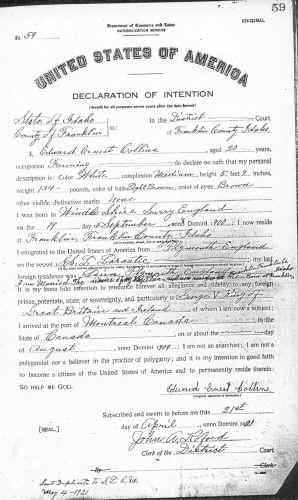 59
ORIGINAL
No. 59
Department of Commerce and Labor
NATURALIZATION SERVICE
UNITED STATES OF AMERICA
DECLARATION OF INTENTION
(Invalid for all purposes seven years after the date hereof)
State of Idaho
County of Franklin ss:
In the District Court
of Franklin County Idaho
I, Edward Ernest Collins, aged 20 years,
occupation Farming, do declare on oath that my personal
description is: Color White, complexion Medium, height 5 feet 9 inches,
weight 134 pounds, color of hair Light Brown, color of eyes Brown
other visible distinctive marks None
I was born in Surry England
on the 19 day of September, anno Domini 1900; I now reside
at Franklin, Franklin County Idaho
I emigrated to the United States of America from Plymouth England
on the vessel; my last
foreign residence was England
It is my bona fide intention to renounce forever all allegiance and fidelity to any foreign
prince, potentate, state, or sovereignty, and particularly to George V King of
Great Britain and Ireland, of whom I am now a subject;
I arrived at the port of Montreal Canada, in the
State of Canada, on or about the day
of August, anno Domini; I am not an anarchist; I am not a
polygamist nor a believer in the practice of polygamy; and it is my intention in good faith
to become a citizen of the United States of America and to permanently reside therein:
SO HELP ME GOD.
Edward Ernest Collins
(Original signature of declarant)
Subscribed and sworn to before me this 21st
[SEAL.] day of April, anno Domini 1921
John A.
Clerk of the District Court.
By, Clerk.
Sent Duplicate to
May 4-1921